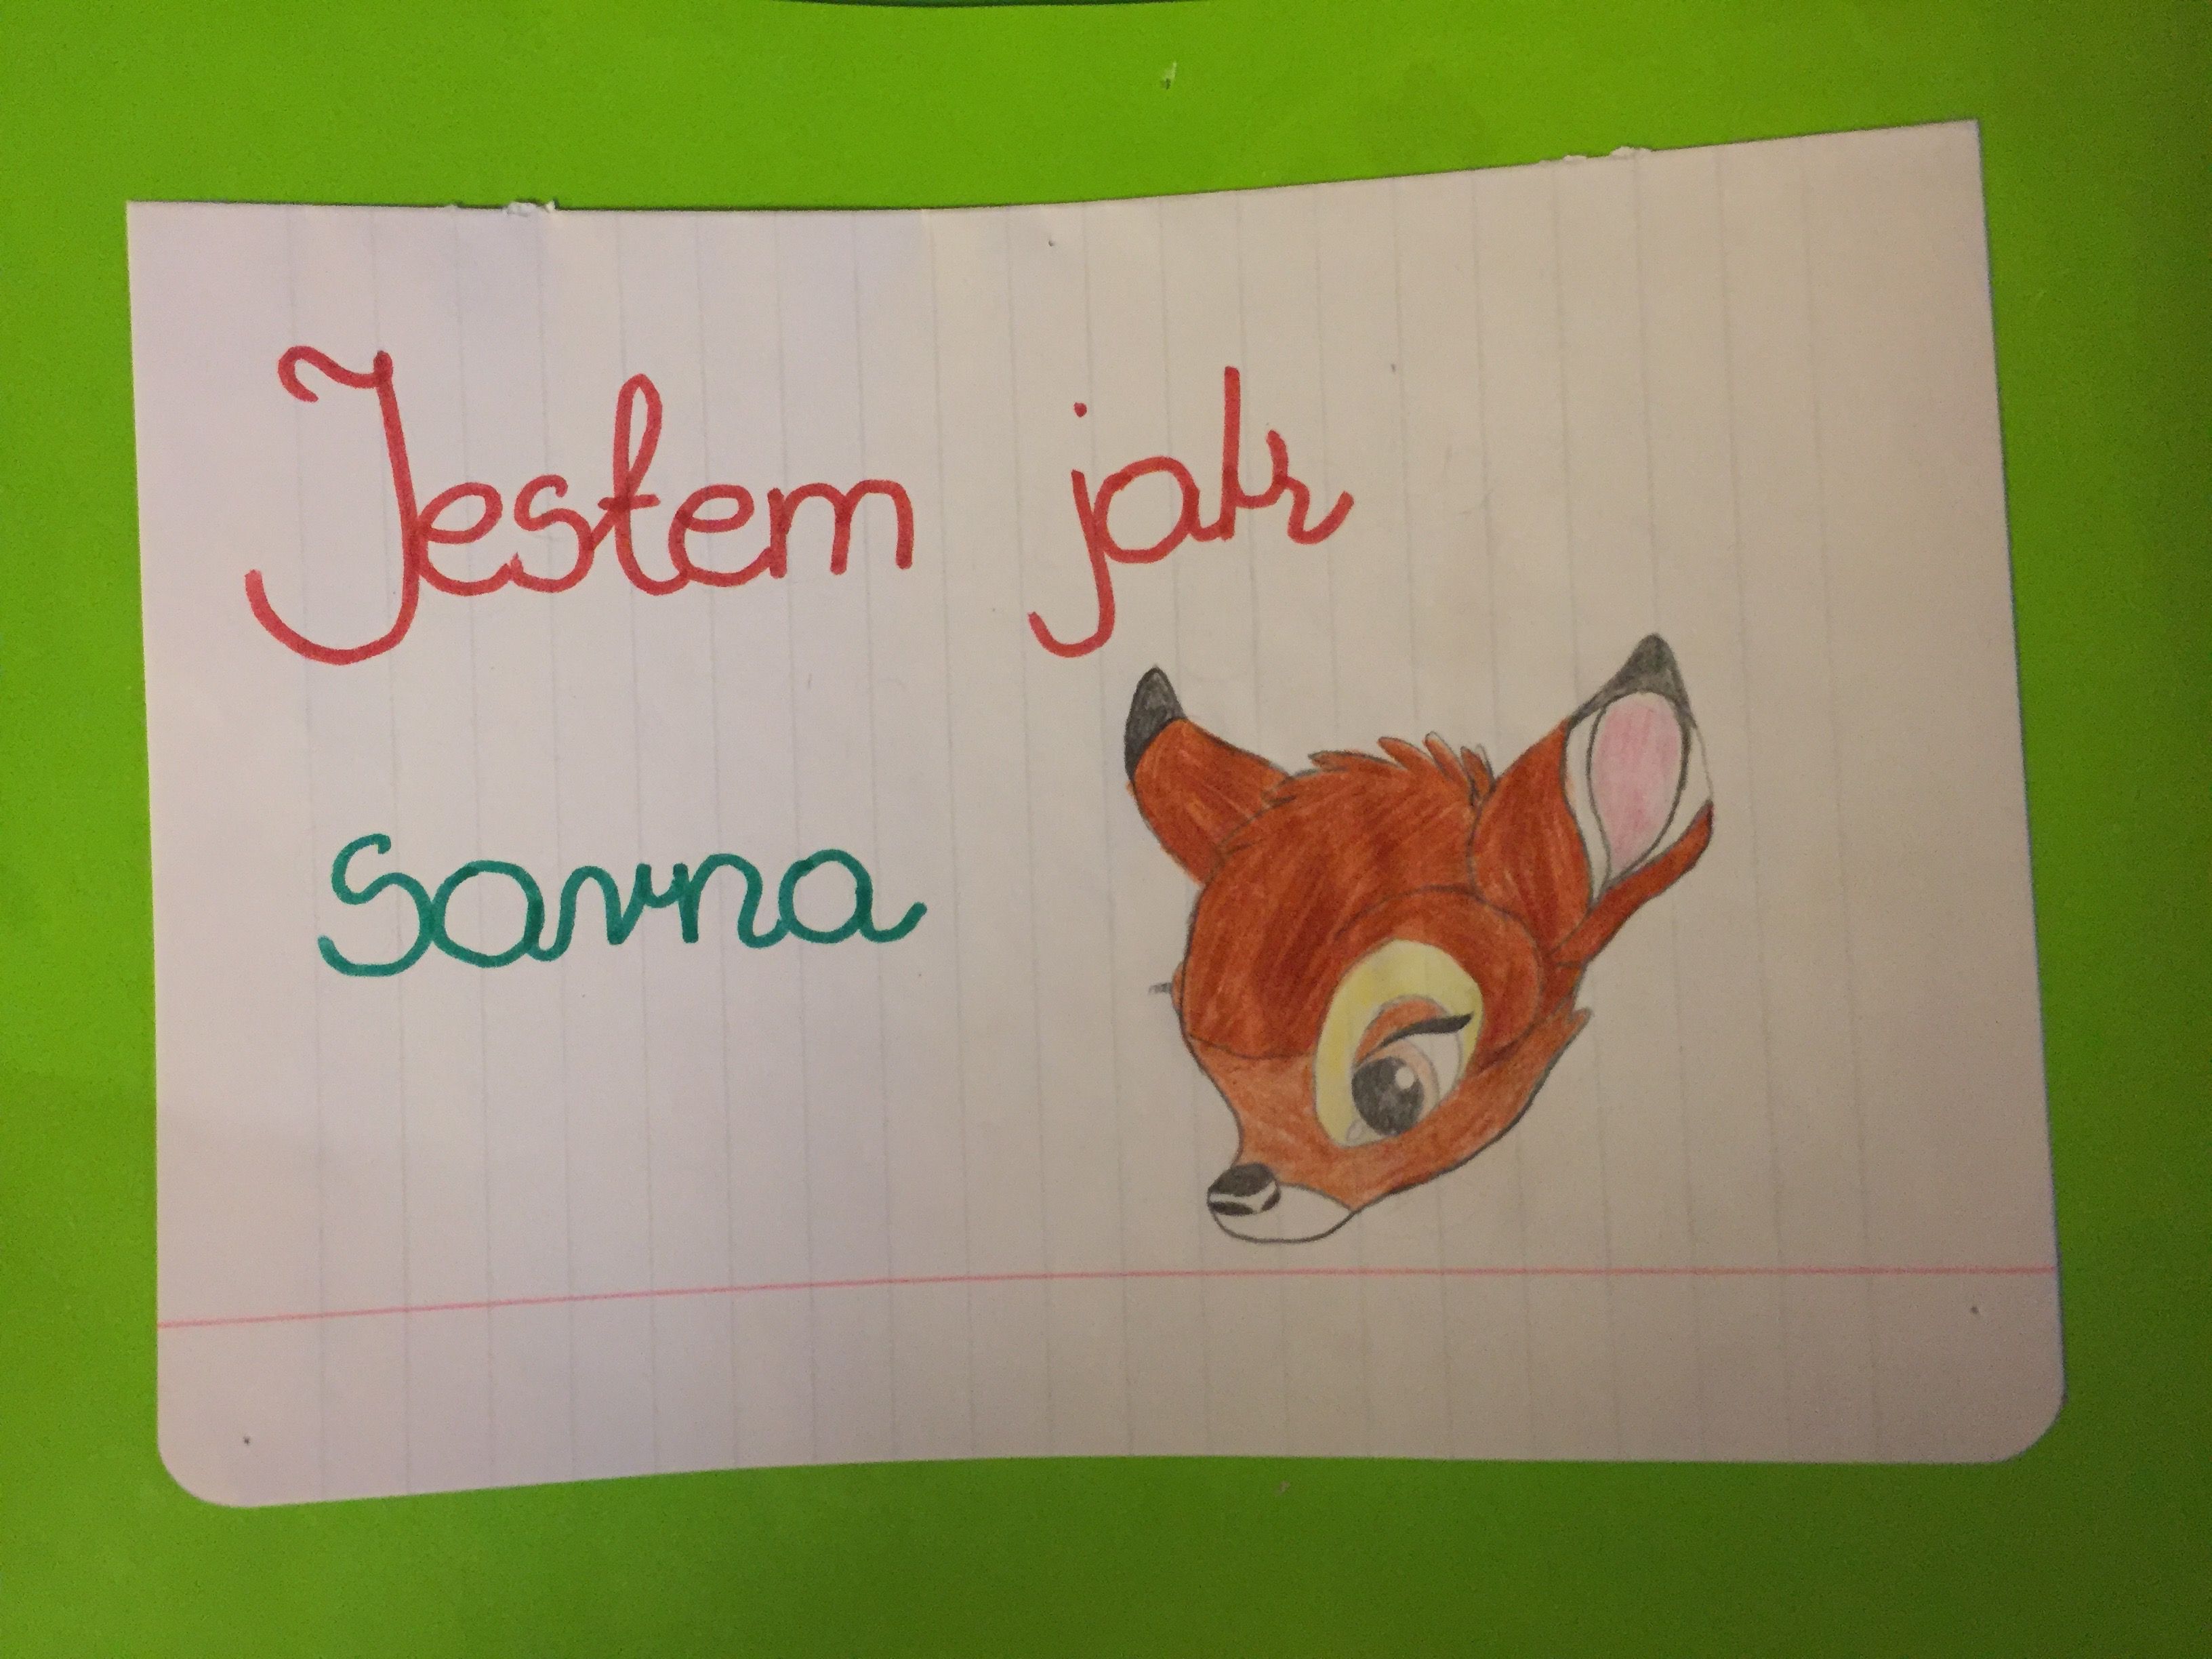 Jestem jak
sarna